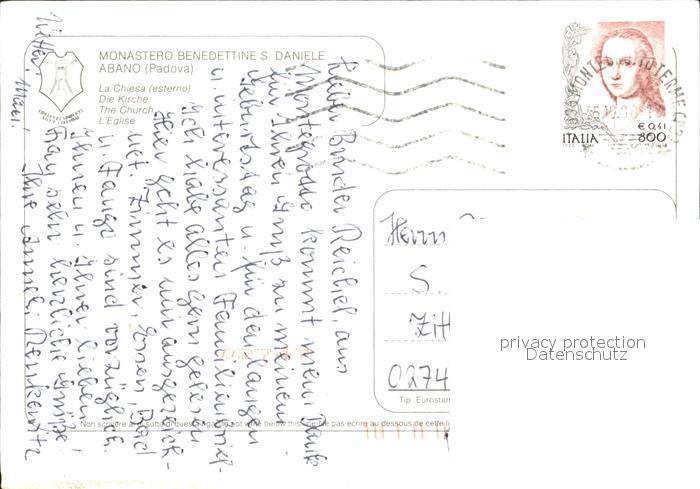 MONASTERO BENEDETTINE S. DANIELE
ABANO (Padova)
La Chiesa (esterno)
Die Kirche
The Church
L'Eglise
ITALIA
€ 0,41
800
Lieber Bruder Reichel, aus
Montegrotto kommt mein Dank
für Ihren Gruß zu meinem
Geburtstag u. für den langen
u. interessanten Familienbrief.
Ich habe alles gern gelesen.
Hier geht es mir ausgezeich-
net. Zimmer, Essen, Bad
u. Fango sind vorzüglich.
Ihnen u. Ihrer lieben
Frau sehr herzliche Grüße!
Ihre Anneli
Herrn
S.
Zitt
0274
privacy protection
Datenschutz
Tip. Eurostan
Non scrivere al di sotto di questa riga Do not write below this line Ne pas écrire au dessous de cette li